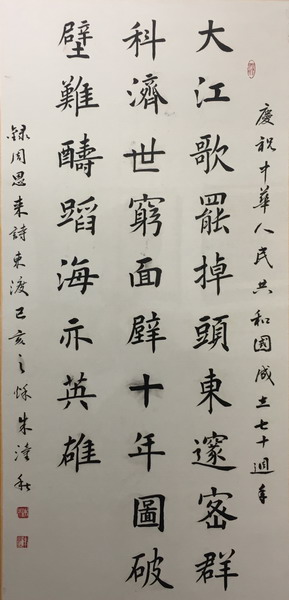 慶祝中華人民共和國成立七十週年
大江歌罷掉頭東邃密群
科濟世窮面壁十年圖破
壁難醻蹈海亦英雄
錄周恩來詩東渡己亥之秋朱